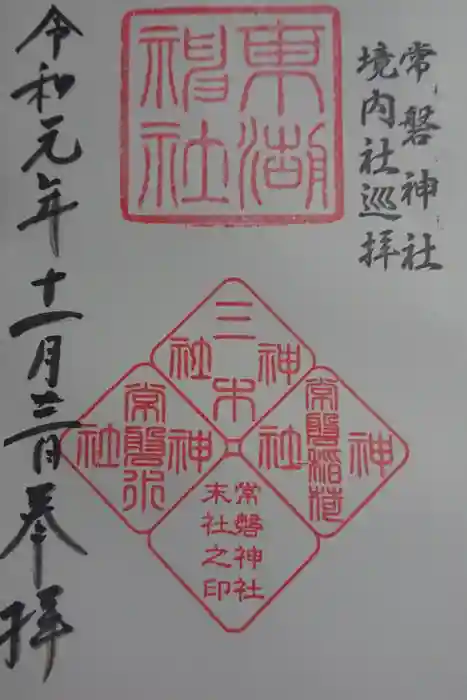 常磐神社
境内社巡拝
東湖
神社
三木
神社
常磐稲荷
神社
常磐水
神社
常磐神社
末社之印
令和元年十一月廿三日奉拝